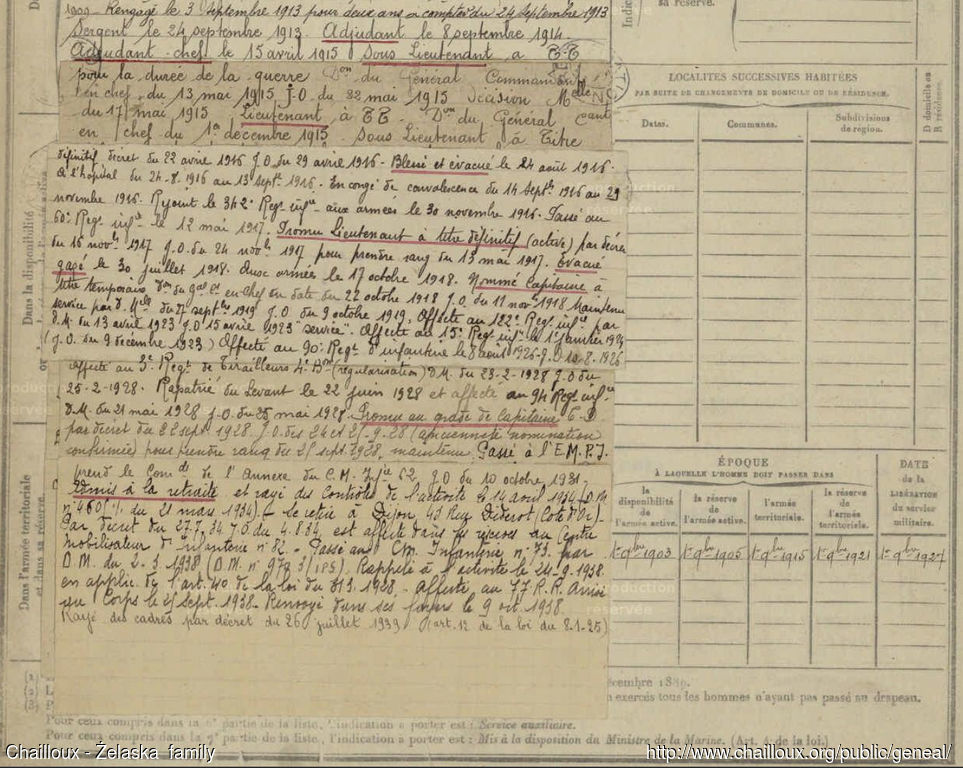 1909 - Rengagé le 3 septembre 1913 pour deux ans à compter du 24 septembre 1913
Sergent le 24 septembre 1913. Adjudant le 8 septembre 1914
Adjudant chef le 15 avril 1915 Sous Lieutenant à T.T
pour la durée de la guerre Don du Général Commandant
en chef du 13 mai 1915 J.O. du 22 mai 1915 Décision Melle
du 17 mai 1915 Lieutenant à TT. Don du Général Cant
en chef du 1er décembre 1915. Sous Lieutenant à Titre
définitif décret du 22 avril 1916 J.O. du 29 avril 1916. Blessé et évacué le 24 août 1916.
à l'hopital du 24.8.1916 au 13 septre 1916. En congé de convalescence du 14 Septre 1916 au 29
novembre 1916. Rejoint le 342e Regt infie aux armées le 30 novembre 1916. Passé au
60e Regt infie le 12 mai 1917. Promu Lieutenant à titre définitif (active) par décret
du 16 novbre 1917 J.O. du 24 novbre 1917 pour prendre rang du 13 mai 1917. Evacué
gazé le 30 juillet 1918. Aux armées le 17 octobre 1918. Nommé Capitaine à
titre temporaire Don du Gal Ct en Chef en date du 22 octobre 1918 J.O. du 11 novre 1918 Maintenu
service par D. Melle du 27 septbre 1919 J.O. du 9 octobre 1919. Affecté au 122e Regt infie par
D.M. du 13 avril 1923 J.O 15 avril 1923 "service". Affecté au 15e Regt infie le 1er janvier 1924
(J.O. du 9 décembre 1923) Affecté au 90e Regt d'infanterie le 8 août 1926-J.O-10-8-1926
Affecté au 3e Regt de Tirailleurs 4e Bon (régularisation) D.M. du 23-2-1928 J.O du
25-2-1928. Rapatrié du Levant le 22 juin 1928 et affecté au 94 Regt infie
D.M. du 21 mai 1928 J.O. du 25 mai 1928. Promu au grade de Capitaine T.D
par décret du 22 sept 1928. J.O. des 24 et 25-9-28 (ancienneté nomination
confirmée) pour prendre rang du 25 sept. 1928, maintenu. Passé à l'E.M.P.I.
prend le Comdt de l'Annexe du C.M. Infie 62 J.O du 10 octobre 1931
Admis à la retraite et rayé des Contrôles de l'activité le 14 août 1934 (D.M
du 21 mars 1934) - Se retire à Dijon, 43 Rue Diderot (Côte d'Or) -
Par décret du 27.7.34 J.O. du 4.8.34 est affecté dans les réserves au Centre
Mobilisateur d'infanterie n° 82. - Passé au CM. Infanterie n° 73. par
D.M. du 2-3-1938 Rappelé à l'activité le 24-9-1938.
en applic. de l'art. 40 de la loi du 31.3.1928. - Affecté au 77 R.R. Arrivé
au Corps le 25 sept. 1938. Renvoyé dans ses foyers le 9 oct. 1938
Rayé des cadres par décret du 26 juillet 1939 (art. 12 de la loi du 8-1-25)
sa réserve.
LOCALITÉS SUCCESSIVES HABITÉES
PAR SUITE DE CHANGEMENTS DE DOMICILE OU DE RÉSIDENCE.
Dates.
Communes.
Subdivisions
de région.
D domicile ou
R résidence.
ÉPOQUE
À LAQUELLE L'HOMME DOIT PASSER DANS
la
disponibilité
de
l'armée active.
la réserve
de
l'armée active.
l'armée
territoriale.
la réserve
de l'armée
territoriale.
DATE
de la
LIBÉRATION
du service
militaire.
1er 9bre 1903
1er 9bre 1905
1er 9bre 1915
1er 9bre 1921
1er 9bre 1927
Dans la disponibilité
Dans l'armée territoriale
et dans sa réserve.
(1)
(2)
(3)
exercés tous les hommes n'ayant pas passé au drapeau.
Pour ceux compris dans la 6e partie de la liste, l'indication à porter est : Service auxiliaire.
Pour ceux compris dans la 2e partie de la liste, l'indication à porter est : Mis à la disposition du Ministre de la Marine. (Art. 4 de la loi.)
Chailloux - Żelaska family
http://www.chailloux.org/public/geneal/